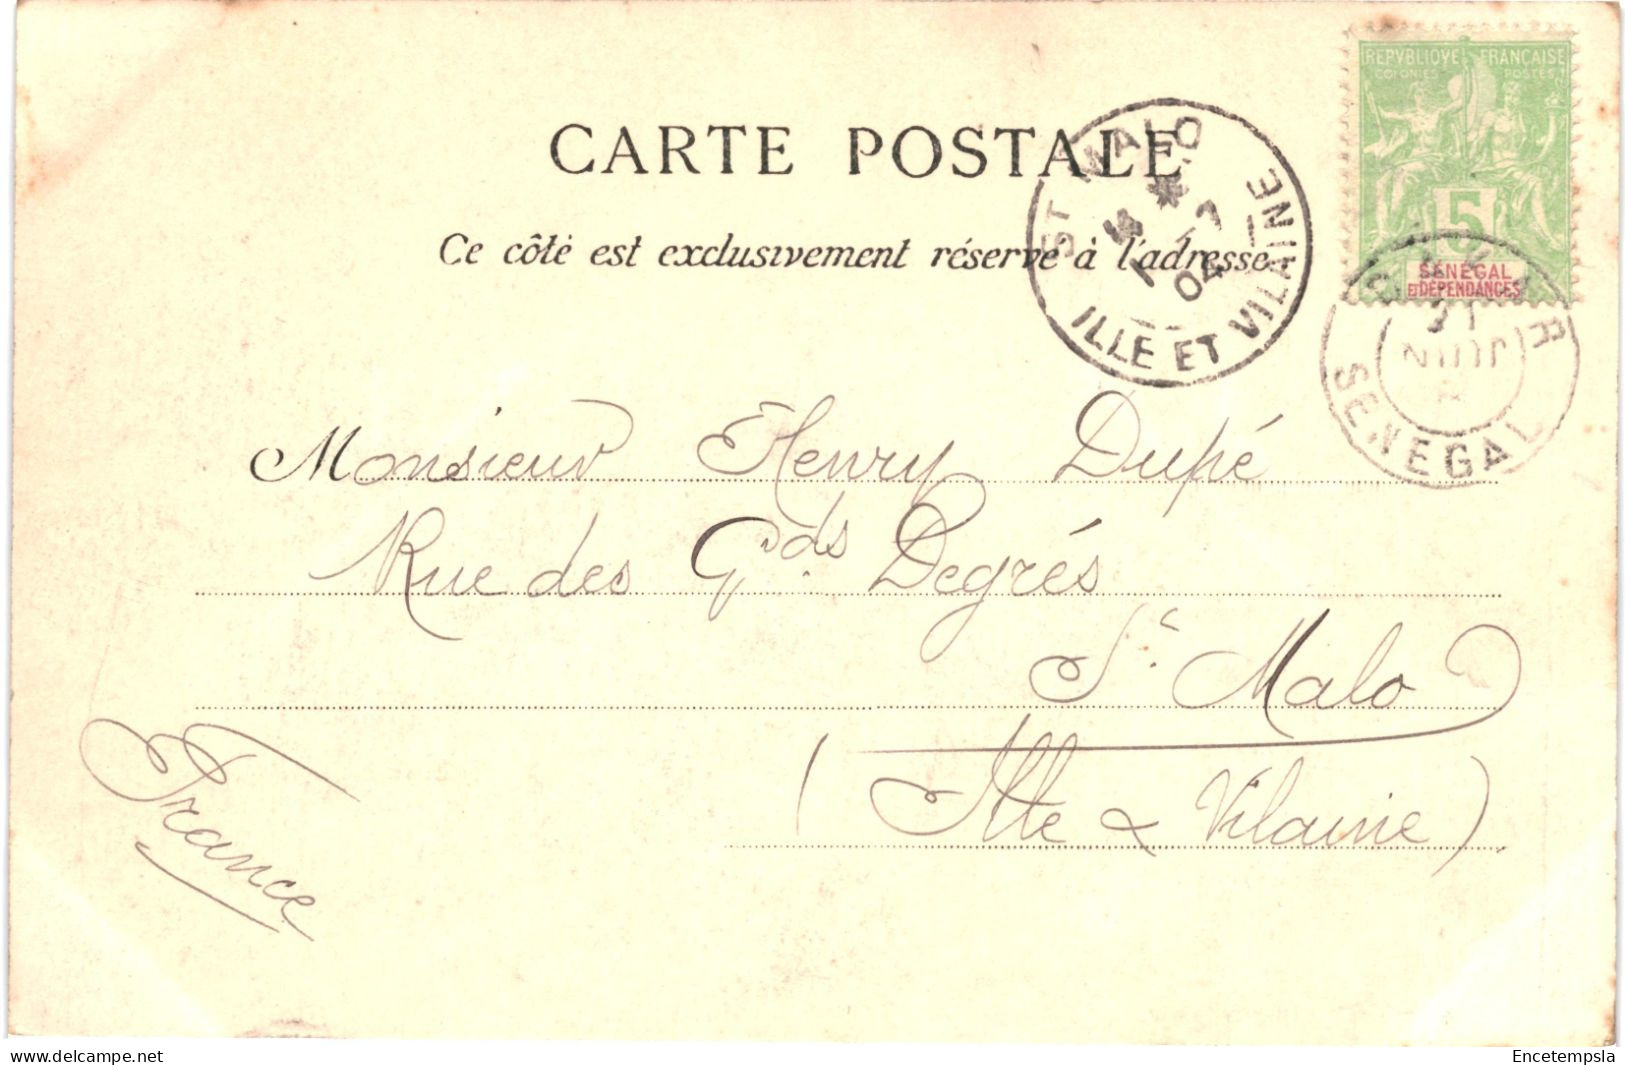 CARTE POSTALE
Ce côté est exclusivement réservé à l'adresse
REPVBLIQVE FRANÇAISE
COLONIES POSTES
5
SÉNÉGAL
ET DÉPENDANCES
ST MALO
04
ILLE ET VILAINE
JUIN
SENEGAL
Monsieur Henry Dupé
Rue des Gds Degrés
St Malo
(Ille & Vilaine)
France
www.delcampe.net
Encetempsla